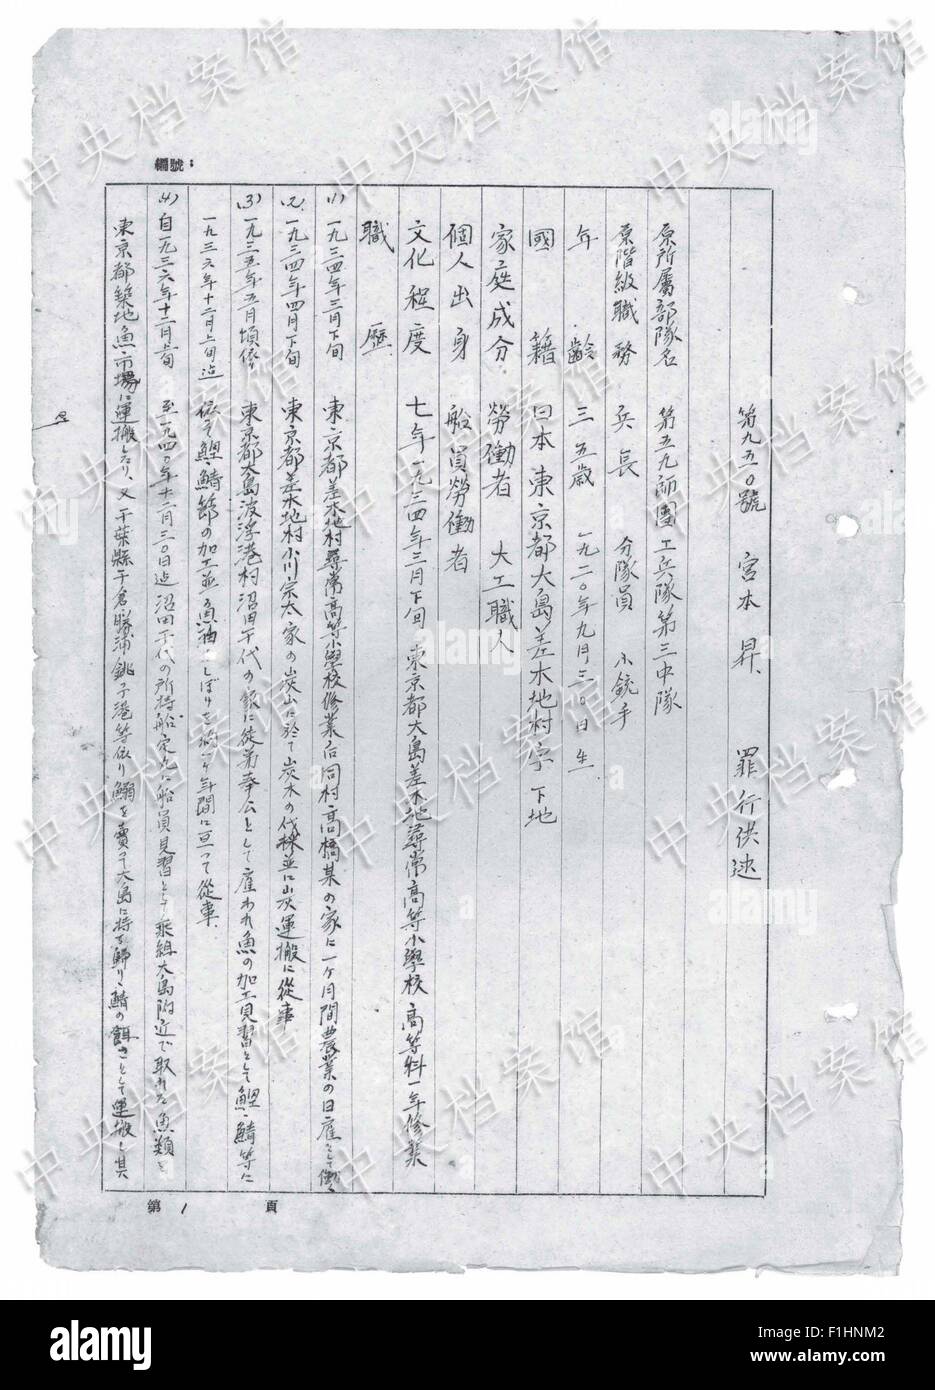 編號：
第九五〇號 宮本 昇 罪行供述
原所屬部隊名 第五九師團工兵隊第三中隊
原階級職務 兵長 分隊員 小銃手
年齡 三五歳 一九二〇年九月三〇日生
國籍 日本東京都大島差木地村字下地
家庭成分 勞働者 大工職人
個人出身 船員勞働者
文化程度 七年 一九三四年三月下旬 東京都大島差木地尋常高等小學校高等科一年修業
職歴
(1) 一九三四年三月下旬 東京都差木地村尋常高等小學校修業后同村高橋某の家に一ヶ月間農業の日雇として働く
(2) 一九三四年四月下旬 東京都差木地村小川宗太家の炭山に於て炭木の伐採並に山灰運搬に從事
(3) 一九三五年五月頃依り 東京都大島波浮港村沼田千代の家に徒弟奉公として雇われ魚の加工見習として鰹、鯖等に
一九三六年十二月上旬迠 依る鰹、鯖節の加工並魚油しぼりを約一ヶ年間に亘って從事
(4) 自一九三六年十二月 旬 至一九四〇年十二月三〇日迠沼田千代の所持船 に船員見習として乘組大島附近で取れた魚類を
東京都築地魚市場に運搬したり、又千葉縣千倉、勝浦、銚子港等依り鰯を賣って大島に持ち歸り、鯖の餌さとして運搬し其
第 1 頁
中央档案馆
alamy
a
alamy
Image ID: F1HNM2
www.alamy.com